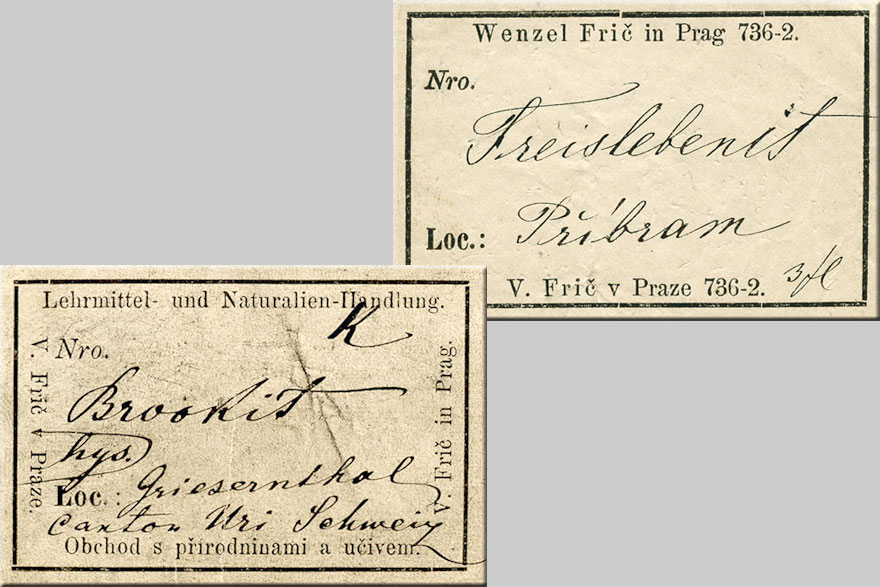 Wenzel Frič in Prag 736-2.
Nro.
Freislebenit
Loc.: Příbram
3 fl
V. Frič v Praze 736-2.
Lehrmittel- und Naturalien-Handlung.
K
V. Frič v Praze.
Nro.
Brookit
hys.
Loc.: Griesernthal
Canton Uri Schweiz
V. Frič in Prag.
Obchod s přírodninami a učivem.